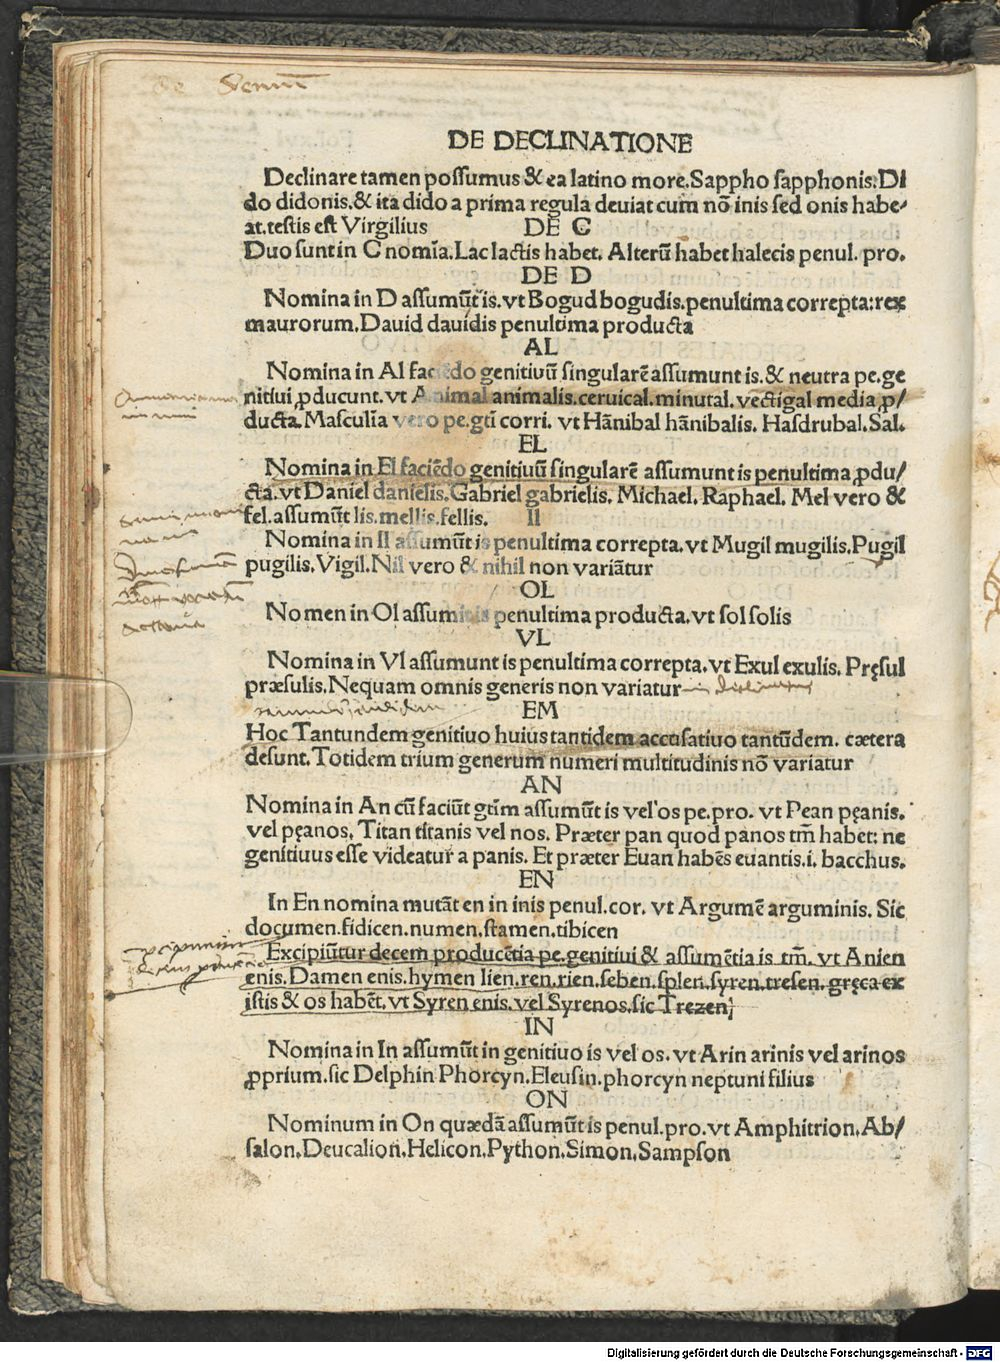 DE DECLINATIONE
Declinare tamen possumus & ea latino more. Sappho sapphonis. Di
do didonis. & ita dido a prima regula deuiat cum nō inis sed onis habe/
at. testis est Virgilius DE C
Duo sunt in C nomīa. Lac lactis habet. Alterū habet halecis penul. pro.
DE D
Nomina in D assumūt is. vt Bogud bogudis. penultima correpta: rex
maurorum. Dauid dauidis penultima producta
AL
Nomina in Al faciēdo genitiuū singularē assumunt is. & neutra pe. ge
nitiui ꝓducunt. vt Animal animalis. ceruical. minutal. vectigal media ꝓ/
ducta. Masculīa vero pe. gtī corri. vt Hānibal hānibalis. Hasdrubal. Sal.
EL
Nomina in El faciēdo genitiuū singularē assumunt is penultima ꝓdu/
cta. vt Daniel danielis. Gabriel gabrielis. Michael. Raphael. Mel vero &
fel. assumūt lis. mellis. fellis. Il
Nomina in Il assumūt is penultima correpta. vt Mugil mugilis. Pugil
pugilis. Vigil. Nil vero & nihil non variātur
OL
Nomen in Ol assumit is penultima producta. vt sol solis
VL
Nomina in Vl assumunt is penultima correpta. vt Exul exulis. Pręsul
præsulis. Nequam omnis generis non variatur
EM
Hoc Tantundem genitiuo huius tantidem accusatiuo tantūdem. cætera
desunt. Totidem trium generum numeri multitudinis nō variatur
AN
Nomina in An cū faciūt gtīm assumūt is vel os pe. pro. vt Pean pęanis.
vel pęanos. Titan titanis vel nos. Præter pan quod panos tm̄ habet: ne
genitiuus esse videatur a panis. Et præter Euan habēs euantis. i. bacchus.
EN
In En nomina mutāt en in inis penul. cor. vt Argumē arguminis. Sic
documen. fidicen. numen. stamen. tibicen
Excipiūtur decem producētia pe. genitiui & assumētia is tm̄. vt Anien
enis. Damen enis. hymen lien. ren. rien. seben. splen. syren. tresen. gręca ex
istis & os habēt. vt Syren enis. vel Syrenos. sic Trezen;
IN
Nomina in In assumūt in genitiuo is vel os. vt Arin arinis vel arinos
ꝓprium. sic Delphin Phorcyn. Eleusin. phorcyn neptuni filius
ON
Nominum in On quædā assumūt is penul. pro. vt Amphitrion. Ab/
salon. Deucalion. Helicon. Python. Simon. Sampson
Digitalisierung gefördert durch die Deutsche Forschungsgemeinschaft - DFG